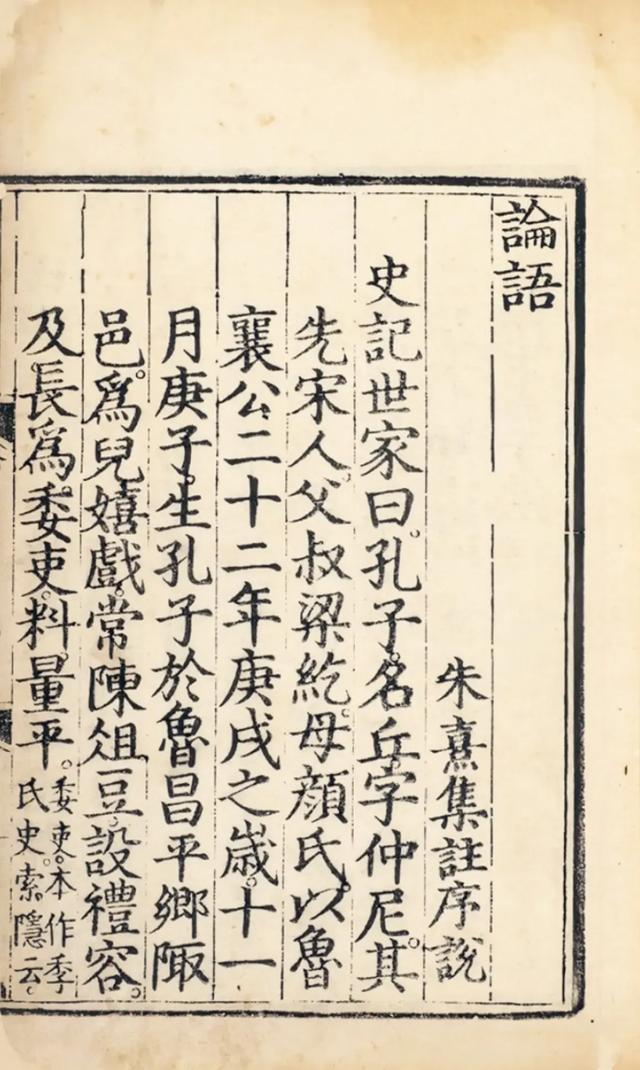 論語
朱熹集註序說
史記世家曰。孔子。名丘。字仲尼。其
先宋人。父叔梁紇。母顔氏。以魯
襄公二十二年庚戌之歲。十一
月庚子。生孔子於魯昌平鄉陬
邑。爲兒嬉戲。常陳俎豆。設禮容。
及長。爲委吏。料量平。委吏。本作季
氏史。索隱云。